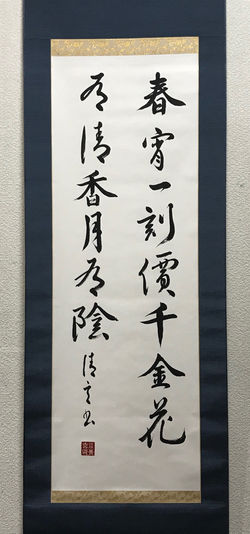 春宵一刻價千金花
有清香月有陰
清之書